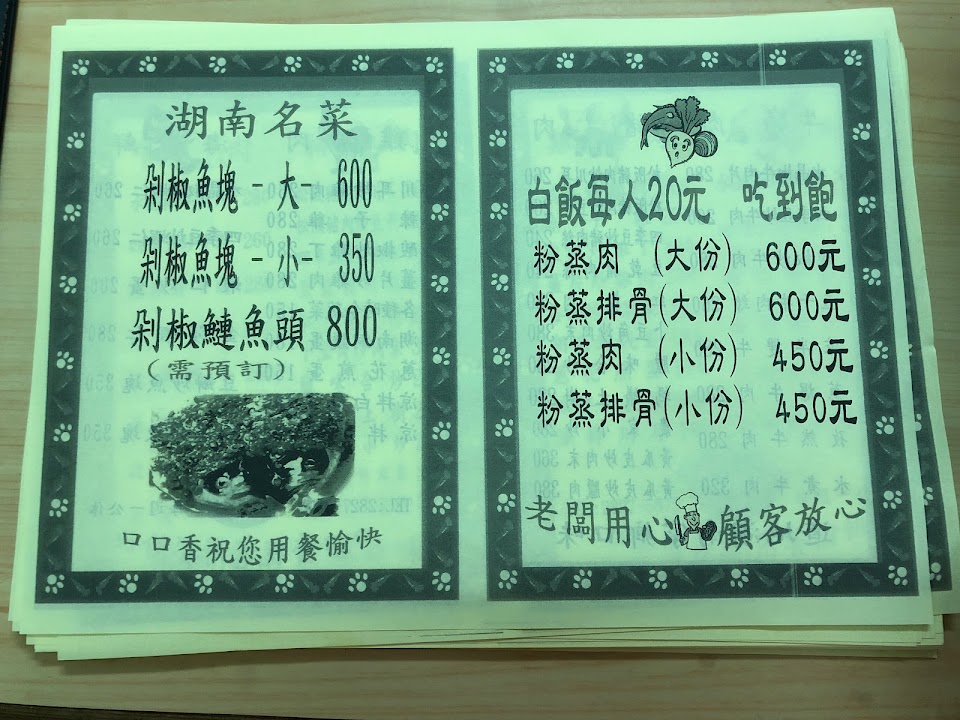 湖南名菜
剁椒魚塊 - 大- 600
剁椒魚塊 - 小- 350
剁椒鰱魚頭 800
(需預訂)
口口香祝您用餐愉快
白飯每人20元 吃到飽
粉蒸肉 (大份) 600元
粉蒸排骨(大份) 600元
粉蒸肉 (小份) 450元
粉蒸排骨(小份) 450元
老闆用心 顧客放心